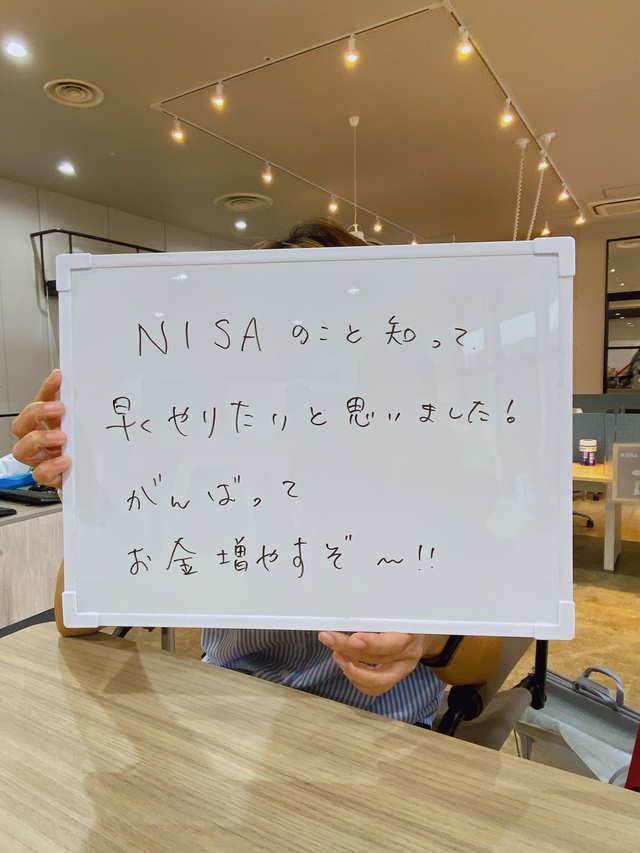 NISAのこと知って
早くやりたいと思いました!
がんばって
お金増やすぞ～!!